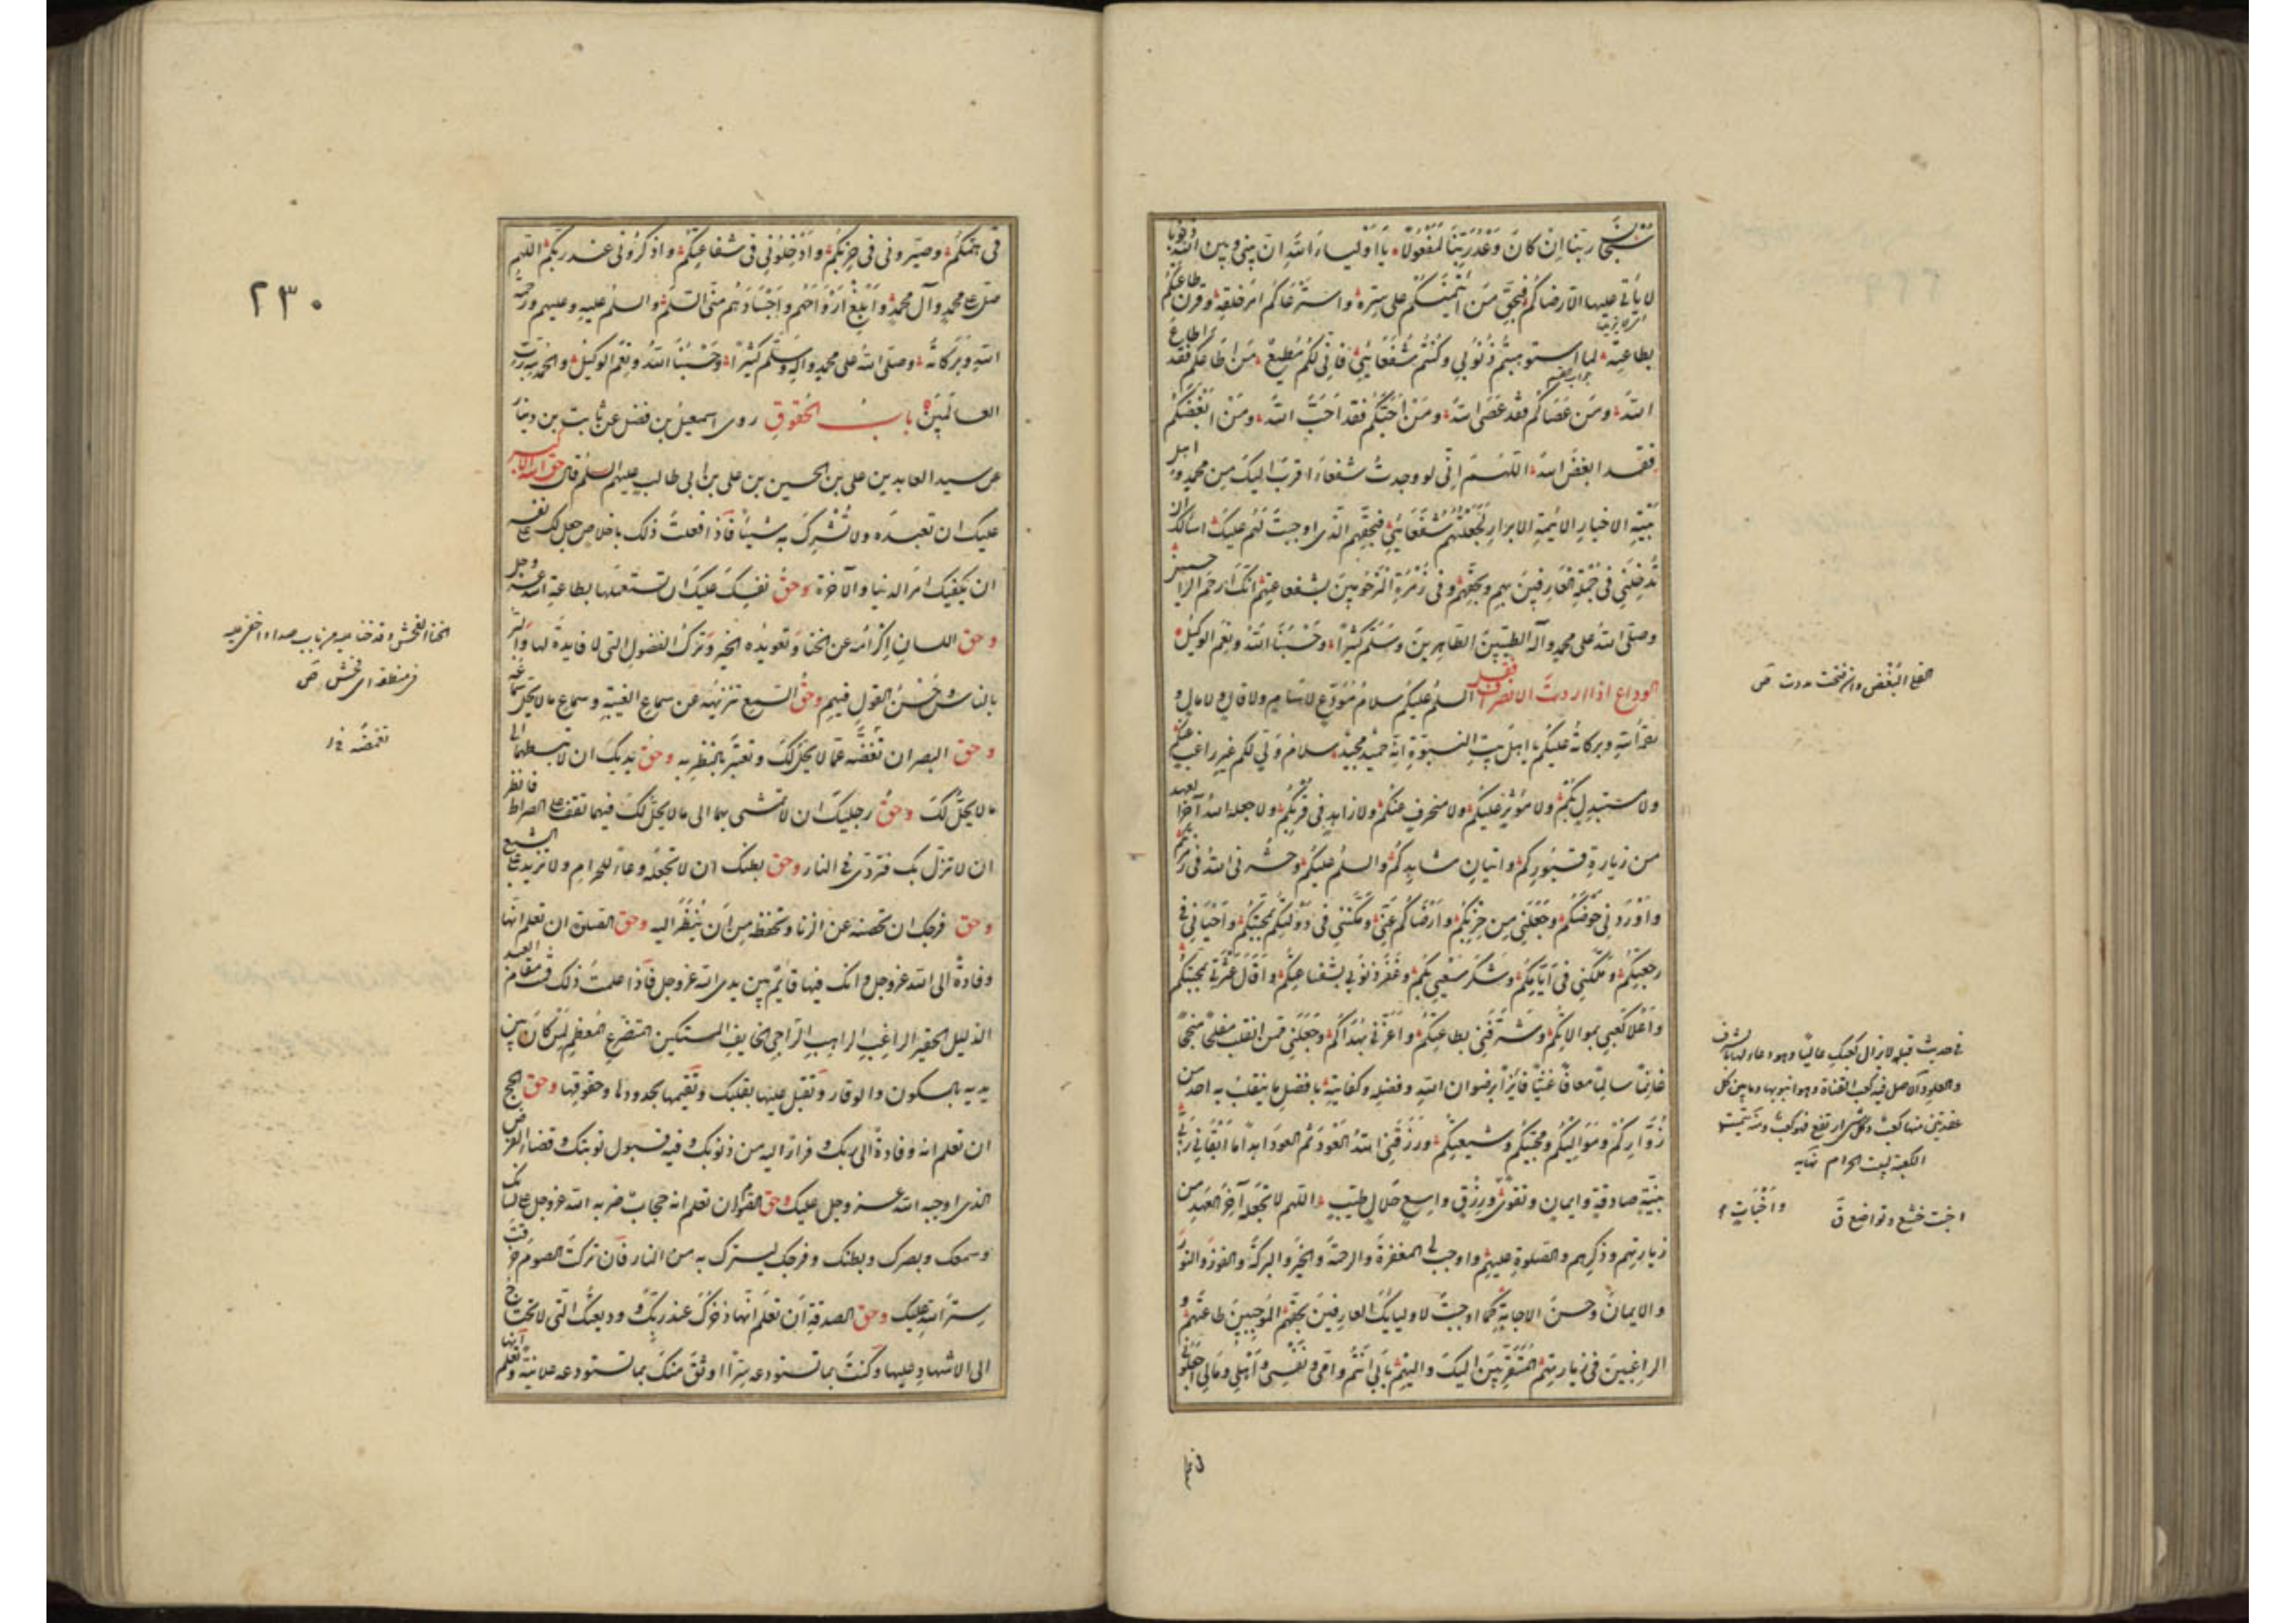 سبحان ربنا ان كان وعد ربنا لمفعولا يا اولياء الله ان بيني وبين الله ذنوبا
لا يأتي عليها الا رضاكم فبحق من ائتمنكم على سره واسترعاكم امر خلقه وقرن طاعتكم
بطاعته لما استوهبتم ذنوبي وكنتم شفعائي فاني لكم مطيع من اطاعكم فقد اطاع
الله ومن عصاكم فقد عصى الله ومن احبكم فقد احب الله ومن ابغضكم
فقد ابغض الله اللهم اني لو وجدت شفعاء اقرب اليك من محمد و اهل
بيته الاخيار الائمة الابرار لجعلتهم شفعائي فبحقهم الذي اوجبت لهم عليك اسألك ان
تدخلني في جملة العارفين بهم وبحقهم وفي زمرة المرحومين بشفاعتهم انك ارحم الراحمين
وصلى الله على محمد وآله الطيبين الطاهرين وسلم كثيرا وحسبنا الله ونعم الوكيل
الوداع اذا اردت الانصراف فقل السلم عليكم سلام مودع لا سئم ولا قال ولا مال و
رحمة الله وبركاته عليكم يا اهل بيت النبوة انه حميد مجيد سلام ولي لكم غير راغب عنكم
ولا مستبدل بكم ولا مؤثر عليكم ولا منحرف عنكم ولا زاهد في قربكم ولا جعله الله آخر العهد
من زيارة قبوركم واتيان مشاهدكم والسلم عليكم وحشرني الله في زمرتكم
واوردني حوضكم وجعلني من حزبكم وارضاكم عني ومكنني في دولتكم بمحبتكم واحياني في
رجعتكم وملكني في ايامكم وشكر سعيي بكم وغفر ذنوبي بشفاعتكم واقال عثرتي بمحبتكم
واعلا كعبي بموالاتكم وشرفني بطاعتكم واعزني بهداكم وجعلني ممن انقلب مفلحا منجحا
غانما سالما معافا غنيا فائزا برضوان الله وفضله وكفايته بافضل ما ينقلب به احد من
زواركم ومواليكم ومحبيكم وشيعتكم ورزقني الله العود ثم العود ابدا ما ابقاني ربي
بنية صادقة وايمان وتقوى ورزق واسع حلال طيب اللهم لا تجعله آخر العهد من
زيارتهم وذكرهم والصلوة عليهم واوجب لي المغفرة والرحمة والخير والبركة والفوز والنور
والايمان وحسن الاجابة كما اوجبت لاوليائك العارفين بحقهم الموجبين طاعتهم و
الراغبين في زيارتهم المتقربين اليك واليهم بابي انتم وامي ونفسي واهلي ومالي اجعلوني
في حديث قيلة لا يزال كعبك عاليا وهو دعاء لها بالشرف
والعلو والاصل فيه كعب القناة وهو انبوبها وما بين كل
عقدتين منها كعب وكل شيء ارتفع فهو كعب ومنه سميت
الكعبة البيت الحرام نهاية
اخبت خشع وتواضع ق
واخبات
في همكم وصيروني في حزبكم وادخلوني في شفاعتكم واذكروني عند ربكم اللهم
صل على محمد وآل محمد وابلغ ارواحهم واجسادهم مني السلم والسلم عليه وعليهم ورحمة
الله وبركاته وصلى الله على محمد وآله وسلم كثيرا وحسبنا الله ونعم الوكيل والحمد لله رب
العالمين باب الحقوق روى اسمعيل بن فضل عن ثابت بن دينار
عن سيد العابدين علي بن الحسين بن علي بن ابي طالب عليهم السلم قال حق الله الاكبر
عليك ان تعبده ولا تشرك به شيئا فاذا فعلت ذلك باخلاص جعل لك على نفسه
ان يكفيك امر الدنيا والآخرة وحق نفسك عليك ان تستعملها بطاعة الله عز وجل
وحق اللسان اكرامه عن الخنا وتعويده الخير وترك الفضول التي لا فايدة لها والبر
بالناس وحسن القول فيهم وحق السمع تنزيهه عن سماع الغيبة وسماع ما لا يحل سماعه
وحق البصر ان تغضه عما لا يحل لك وتعتبر بالنظر به وحق يديك ان لا تبسطهما الى
ما لا يحل لك وحق رجليك ان لا تمشي بهما الى ما لا يحل لك فبهما تقف على الصراط فانظر
ان لا تزل بك فتردى في النار وحق بطنك ان لا تجعله وعاء للحرام ولا تزيد على الشبع
وحق فرجك ان تحصنه عن الزنا وتحفظه من ان ينظر اليه وحق الصلوة ان تعلم انها
وفادة الى الله عز وجل وانك فيها قائم بين يدي الله عز وجل فاذا علمت ذلك قمت مقام العبد
الذليل الحقير الراغب الراهب الراجي الخايف المستكين المتضرع المعظم لمن كان بين
يديه بالسكون والوقار وتقبل عليها بقلبك وتقيمها بحدودها وحقوقها وحق الحج
ان تعلم انه وفادة الى ربك وفرار اليه من ذنوبك وفيه قبول توبتك وقضاء الفرض
الذي اوجبه الله عز وجل عليك وحق الصوم ان تعلم انه حجاب ضربه الله عز وجل على لسانك
وسمعك وبصرك وبطنك وفرجك ليسترك به من النار فان تركت الصوم خرقت
ستر الله عليك وحق الصدقة ان تعلم انها ذخرك عند ربك ووديعتك التي لا تحتاج
الى الاشهاد عليها وكنت بما تستودعه سرا اوثق منك بما تستودعه علانية وتعلم انها
٢٣٠